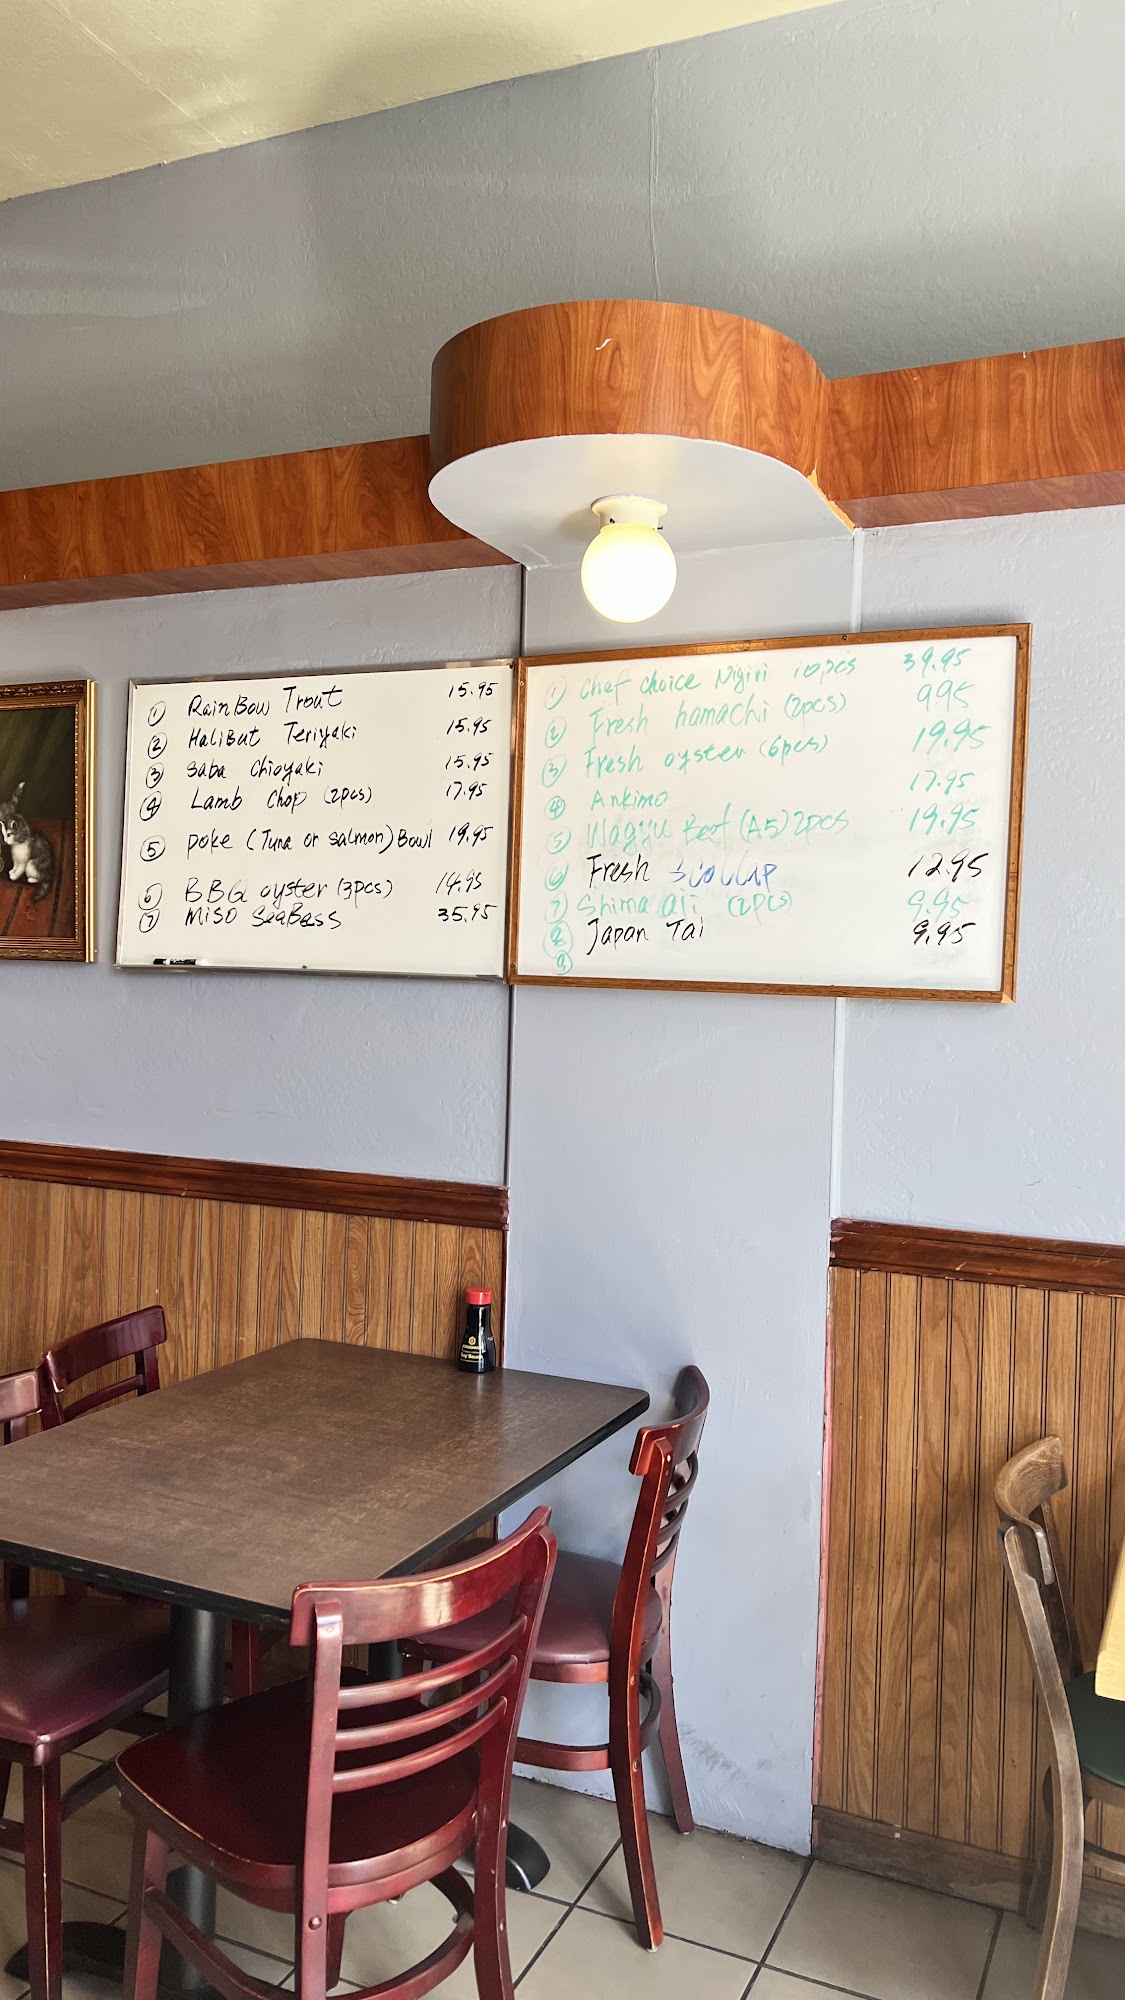 ① RainBow Trout 15.95
② HaliBut Teriyaki 15.95
③ saba chioyaki 15.95
④ Lamb chop (2pcs) 17.95
⑤ poke (Tuna or salmon) Bowl 19.95
6 BBQ oyster (3pcs) 14.95
⑦ Miso SeaBass 35.95
① Chef choice Nigiri 10pcs 39.95
② Fresh hamachi (2pcs) 9.95
③ Fresh oyster (6pcs) 19.95
④ Ankimo 17.95
⑤ Wagyu Beef (A5) 2pcs 19.95
⑥ Fresh scollap 12.95
⑦ Shima aji (2pcs) 9.95
Japan Tai 9.95